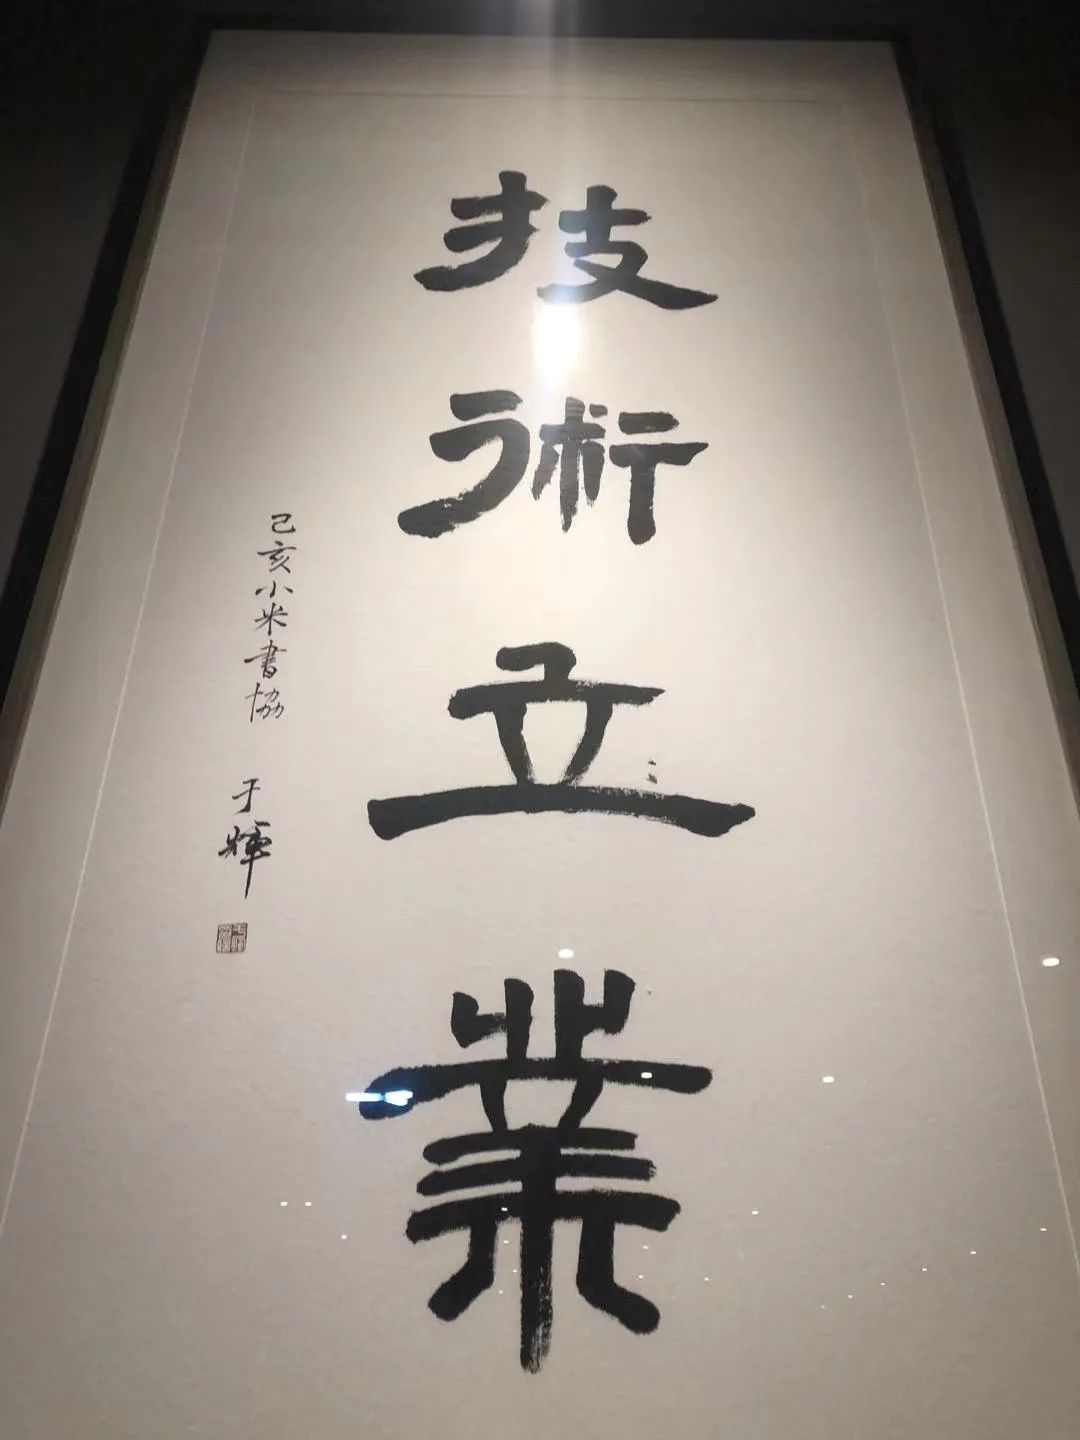 技術立業
己亥小米書協 于輝